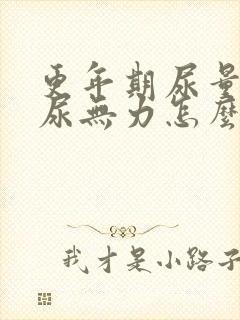 更年期尿量
尿無力怎麼
我才是小路子